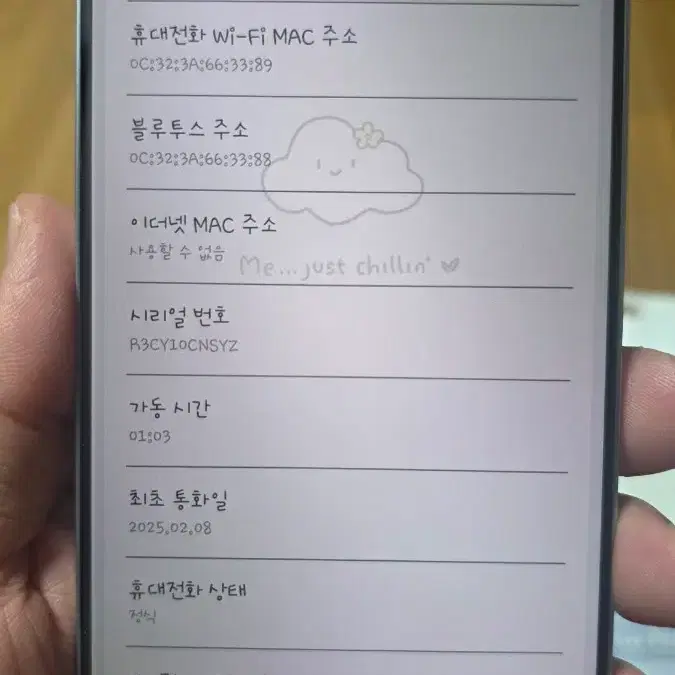 휴대전화 Wi-Fi MAC 주소
0C:32:3A:66:33:89
블루투스 주소
0C:32:3A:66:33:88
이더넷 MAC 주소
사용할 수 없음
Me...just chillin'
시리얼 번호
R3CY10CNSYZ
가동 시간
01:03
최초 통화일
2025.02.08
휴대전화 상태
정식